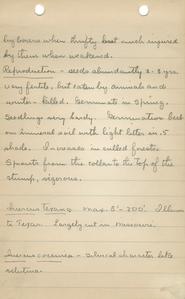 by borers when thrifty but much injured
by them when weakened.
Reproduction - seeds abundantly 2-3 yrs.
very fertile, but eaten by animals and
winter-killed. Germinate in Spring.
Seedlings very hardy. Germination best
on mineral soil with light litter in .5
shade. Increase in culled forests
Sprouts from the collar to the top of the
stump, vigorous.
Quercus Texana max. 8'-200'.
to Texas. Largely cut in Missouri.
Quercus coccinea - silvical characters like
velutina.